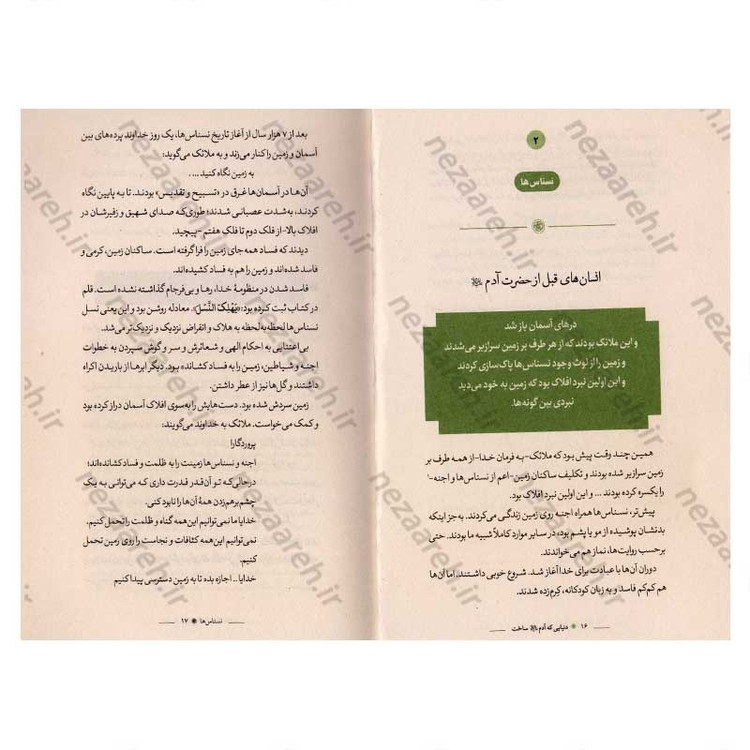 ۲
نسناس‌ها
انسان‌های قبل از حضرت آدم
درهای آسمان باز شد
و این ملائک بودند که از هر طرف بر زمین سرازیر می‌شدند
و زمین را از لوث وجود نسناس‌ها پاک‌سازی کردند
و این اولین نبرد افلاک بود که زمین به خود می‌دید
نبردی بین گونه‌ها.
همین چند وقت پیش بود که ملائک-به فرمان خدا-از همه طرف بر
زمین سرازیر شده بودند و تکلیف ساکنان زمین-اعم از نسناس‌ها و اجنه-
را یکسره کرده بودند ... و این اولین نبرد افلاک بود.
پیش‌تر، نسناس‌ها همراه اجنه روی زمین زندگی می‌کردند. به‌جز اینکه
بدنشان پوشیده از مو یا پشم بود، در سایر موارد کاملاً شبیه ما بودند. حتی
برحسب روایت‌ها، نماز هم می‌خواندند.
دوران آن‌ها با عبادت برای خدا آغاز شد. شروع خوبی داشتند. اما آن‌ها
هم کم‌کم فاسد و به زبان کودکانه، کِرم‌زده شدند.
۱۶ دنیایی که آدم ساخت
بعد از ۷ هزار سال از آغاز تاریخ نسناس‌ها، یک روز خداوند پرده‌های بین
آسمان و زمین را کنار می‌زند و به ملائک می‌گوید:
به زمین نگاه کنید ...
آن‌ها در آسمان‌ها غرق در «تسبیح و تقدیس» بودند. تا به پایین نگاه
کردند، به‌شدت عصبانی شدند؛ طوری‌که صدای شهیق و زفیرشان در
افلاک بالا-از فلک دوم تا فلک هفتم-پیچید.
دیدند که فساد همه‌جای زمین را فرا گرفته است. ساکنان زمین، کرمی و
فاسد شده‌اند و زمین را هم به فساد کشیده‌اند.
فاسد شدن در منظومهٔ خدا، رها و بی‌فرجام گذاشته نشده است. قلم
در کتاب ثبت کرده بود: «یُهلِکَ النَّسل». معادله روشن بود و این یعنی نسل
نسناس‌ها لحظه‌به‌لحظه به هلاک و انقراض نزدیک و نزدیک‌تر می‌شد.
بی‌اعتنایی به احکام الهی و شعائرش و سر و گوش سپردن به خطوات
اجنه و شیاطین، زمین را به فساد کشانده بود. دیگر ابرها از باریدن اکراه
داشتند و گل‌ها نیز از عطر داشتن.
زمین سردش شده بود. دست‌هایش را به‌سوی افلاک آسمان دراز کرده بود
و کمک می‌خواست. ملائک به خداوند می‌گویند:
پروردگارا
اجنه و نسناس‌ها زمینت را به ظلمت و فساد کشانده‌اند؛
درحالی‌که تو آن‌قدر قدرت داری که می‌توانی به یک
چشم برهم‌زدن همهٔ آن‌ها را نابود کنی.
خدایا ما نمی‌توانیم این‌همه گناه و ظلمت را تحمل کنیم،
نمی‌توانیم این‌همه کثافات و نجاست را روی زمین تحمل
کنیم.
خدایا .. اجازه بده تا به زمین دسترسی پیدا کنیم
نسناس‌ها ۱۷
nezaareh.ir